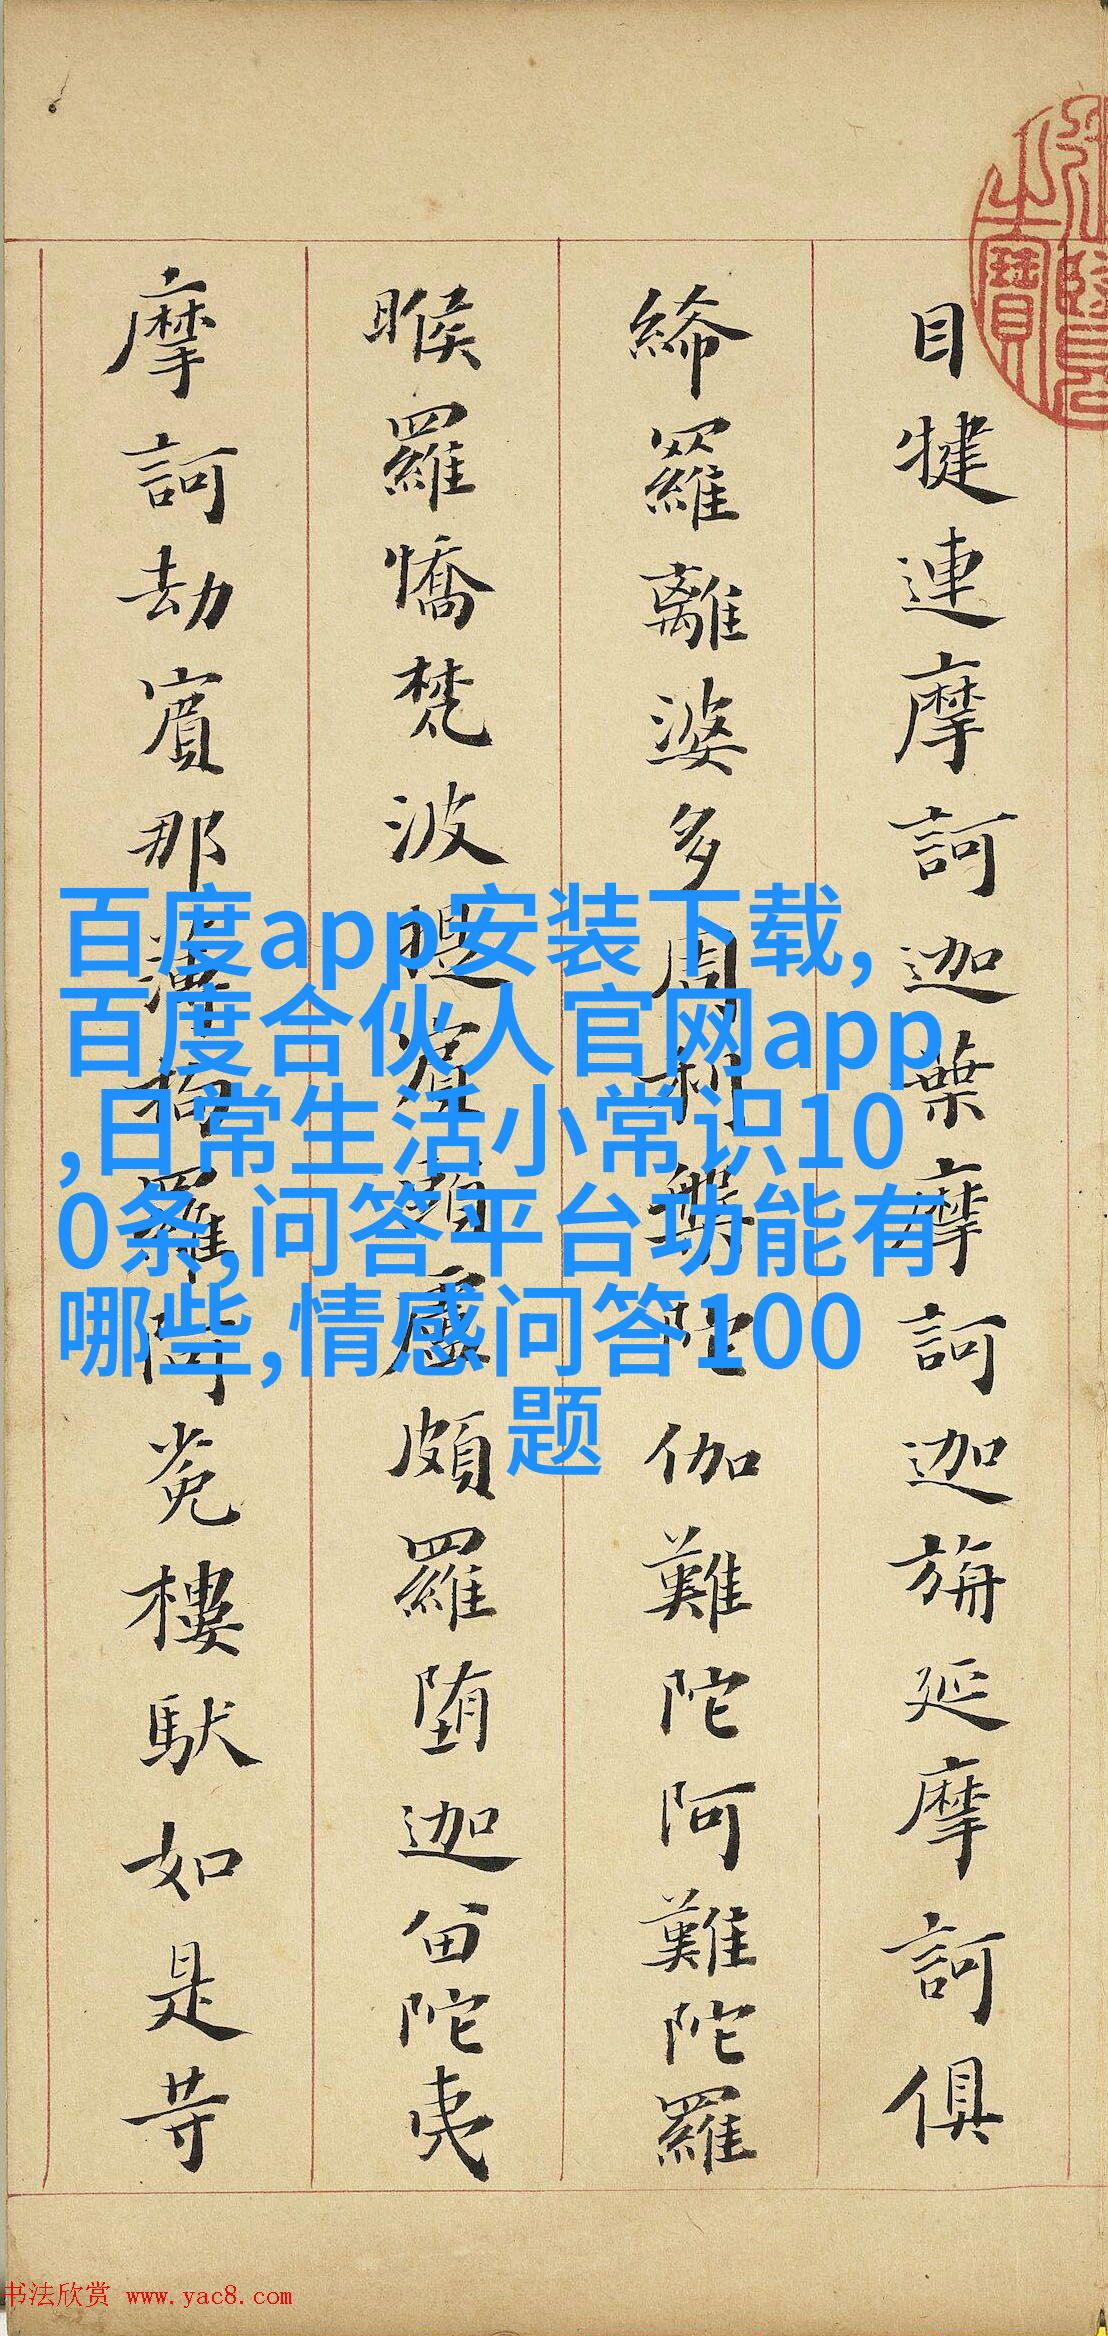 目犍連摩訶迦葉摩訶迦旃延摩訶俱
絺羅離婆多周利槃陀伽難陀阿難陀羅
睺羅憍梵波提賓頭盧頗羅堕迦留陀夷
摩訶劫賓那薄拘羅阿㝹樓馱如是等
之寶
百度app安装下载,
百度合伙人官网app
,日常生活小常识10
0条,问答平台功能有
哪些,情感问答100
题
书法欣赏 www.yac8.com